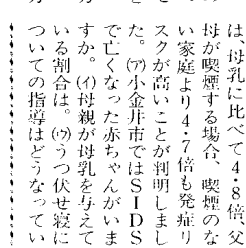 は、母乳に比べて4・8倍、父
母が喫煙する場合、喫煙のな
い家庭より4・7倍も発症リ
スクが高いことが判明しまし
た。㋐小金井市ではSIDS
で亡くなった赤ちゃんがいま
すか。㋑母親が母乳を与えて
いる割合は。㋒うつ伏せ寝に
ついての指導はどうなってい